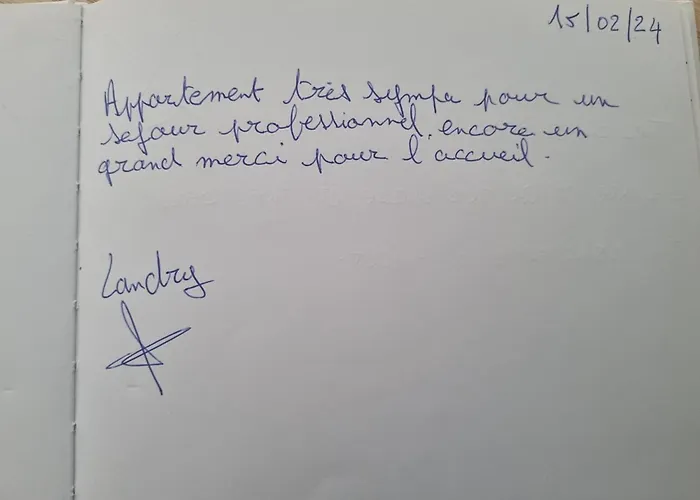 15/02/24
Appartement très sympa pour un
sejour professionnel, encore un
grand merci pour l'accueil.
Landry